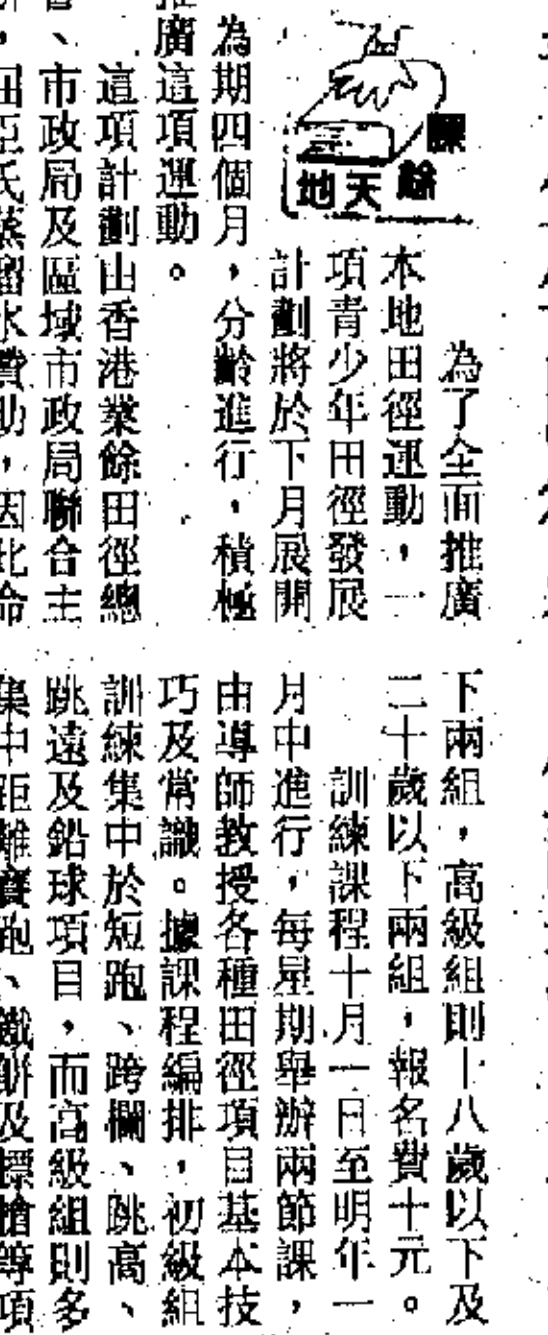 課餘
天地
為了全面推廣
本地田徑運動，一
項青少年田徑發展
計劃將於下月展開
為期四個月，分齡進行，積極
推廣這項運動。
這項計劃由香港業餘田徑總
會、市政局及區域市政局聯合主
辦，屈臣氏蒸餾水贊助，因此命
下兩組，高級組則十八歲以下及
二十歲以下兩組，報名費十元。
訓練課程十月一日至明年一
月中進行，每星期舉辦兩節課，
由導師教授各種田徑項目基本技
巧及常識。據課程編排，初級組
訓練集中於短跑、跨欄、跳高、
跳遠及鉛球項目，而高級組則多
集中距離賽跑、鐵餅及標槍等項